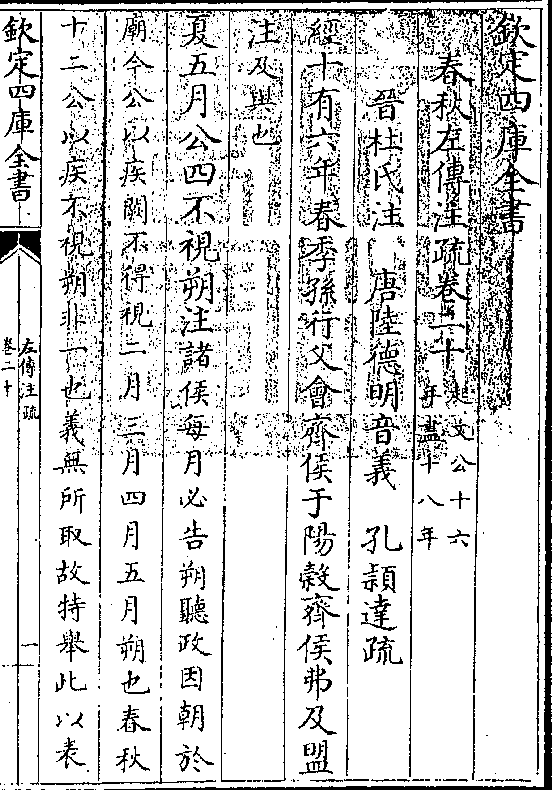 欽定四庫全書
春秋左傳注疏卷二十
起文公十六
年盡十八年
晉杜氏注 唐陸德明音義 孔穎達疏
經十有六年春季孫行父會齊侯于陽穀齊侯弗及盟
注及與也
夏五月公四不視朔注諸侯每月必告朔聽政因朝於
廟今公以疾闕不得視二月三月四月五月朔也春秋
十二公以疾不視朔非一也義無所取故特舉此以表
欽定四庫全書
左傳注疏
卷二十
一